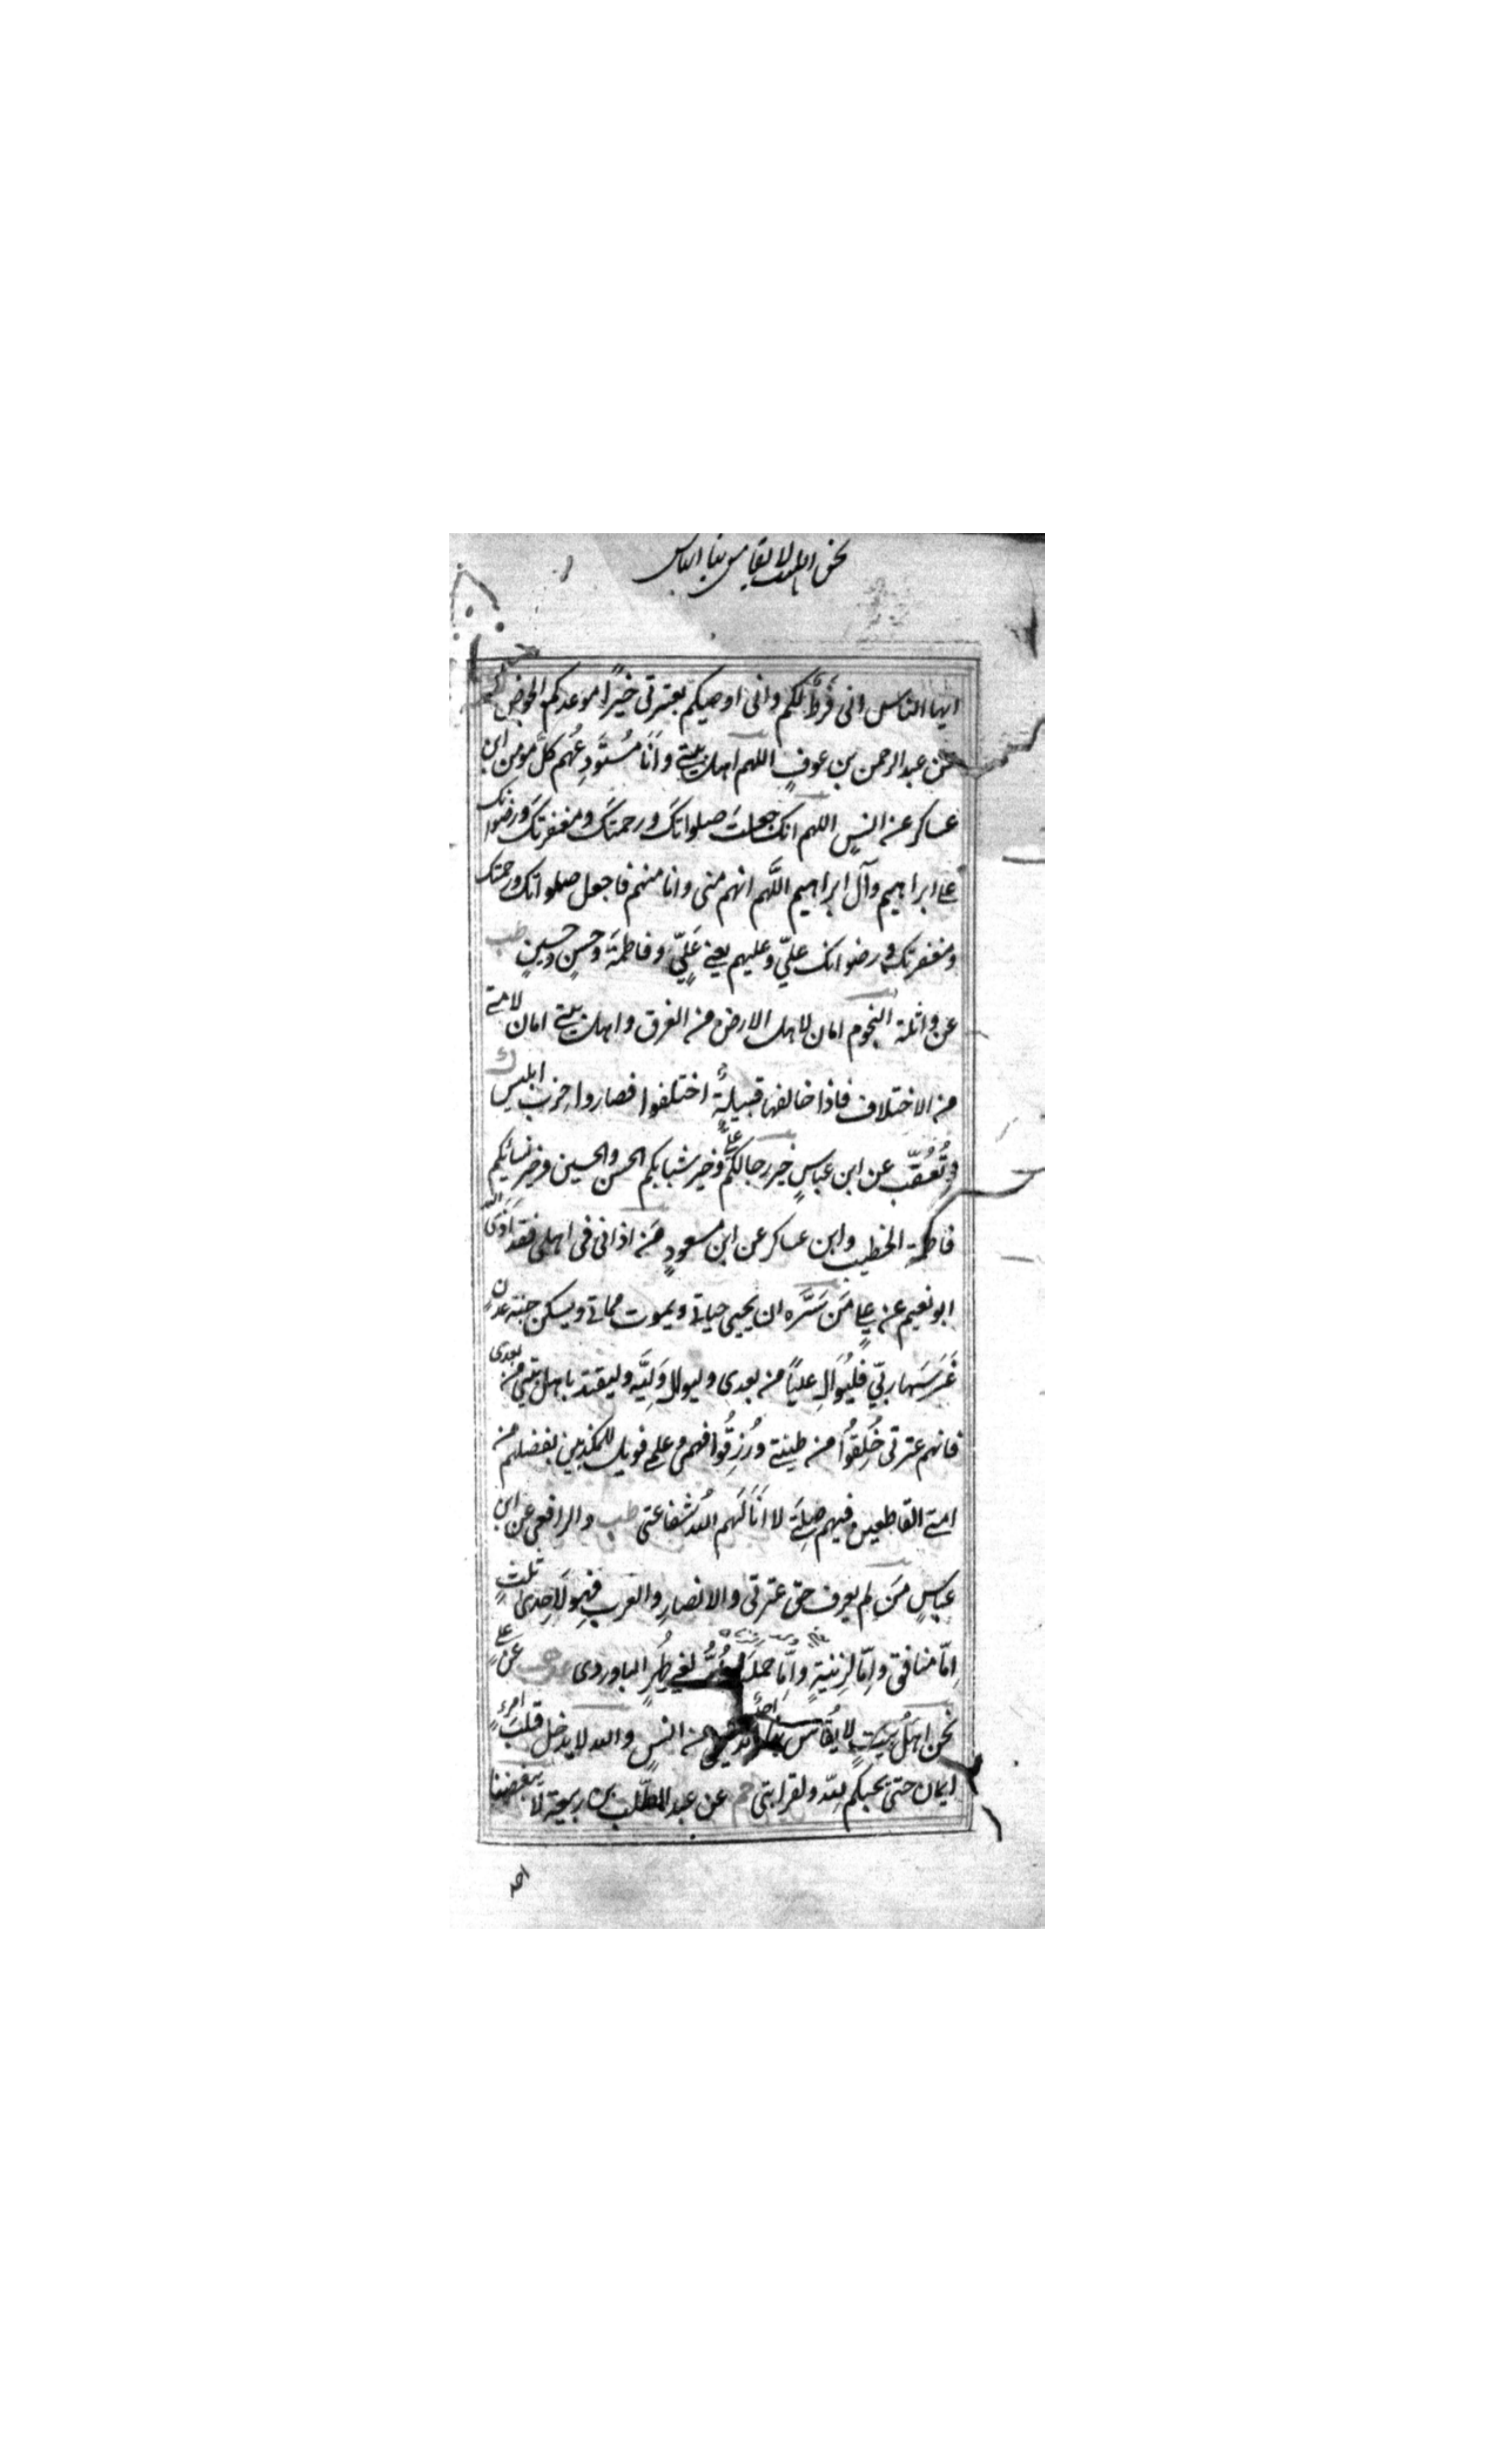 نحن اهل البيت لا يقاس بنا الناس
ايها الناس انى فَرَطٌ لكم وانى اوصيكم بعترتى خيرًا موعدكم الحوض ك
عن عبد الرحمن بن عوفٍ اللهم اهل بيتے وانَا مُستَودِعُهم كلَّ مومن ابن
عساكر عن انسٍ اللهم انك جعلتَ صلواتكَ ورحمتكَ ومغفرتكَ ورضوانك
علے ابراهيم وآل ابراهيم اللّٰهم انهم منى وانا منهم فاجعل صلواتك ورحمتك
ومغفرتك ورضوانك عليّ وعليهم يعنے عَلِيٍّ وفاطمةَ وحسنٍ وحسينٍ طب
عن واثلة النجوم امان لاهل الارض من الغرق واهل بيتے امان لامتے
من الاختلاف فاذا خالفها قبيلةٌ اختلفوا فصاروا حزب ابليس ك
وتُعُقّب عن ابن عباسٍ خير رجالكم علےٌ وخير شبابكم الحسن والحسين وخير نسائكم
فاطمة الخطيب وابن عساكر عن ابن مسعودٍ من اذانى فى اهلى فقد اَذَى الله
ابو نعيم عن علےٍ مَن سَرَّه ان يحيى حياتے ويموت مماتے ويسكن جنة عدنٍ
غَرَسَها ربّي فليُوَالِ عليًا من بعدى وليوال وَلِيَّه وليقتد باهل بيتي من بعدى
فانهم عترتى خُلِقُوا من طينتے ورُزِقُوا فهمى وعلمے فويل للمكذبين بفضلهم من
امتے القاطعين فيهم صِلَتے لا اَنَا لَهم اللهُ شفاعتى طب والرافعى عن ابن
عباسٍ مَن لم يعرف حق عترتى والانصارِ والعرب فهو لاحدى ثلثٍ
اِمّا منافق واِمّا لِزِنْيَةٍ واِمّا حملته اُمُّه لغير طُهرٍ الباوردى عد هب عن علےٍ
نحن اهلُ بيتٍ لا يُقَاس بنا احدٌ عن انسٍ والله لا يدخل قلبَ امرءٍ
ايمان حتى يحبكم لله ولقرابتى حم عن عبد المطّلب بن ربيعة لا يبغضنا
احد